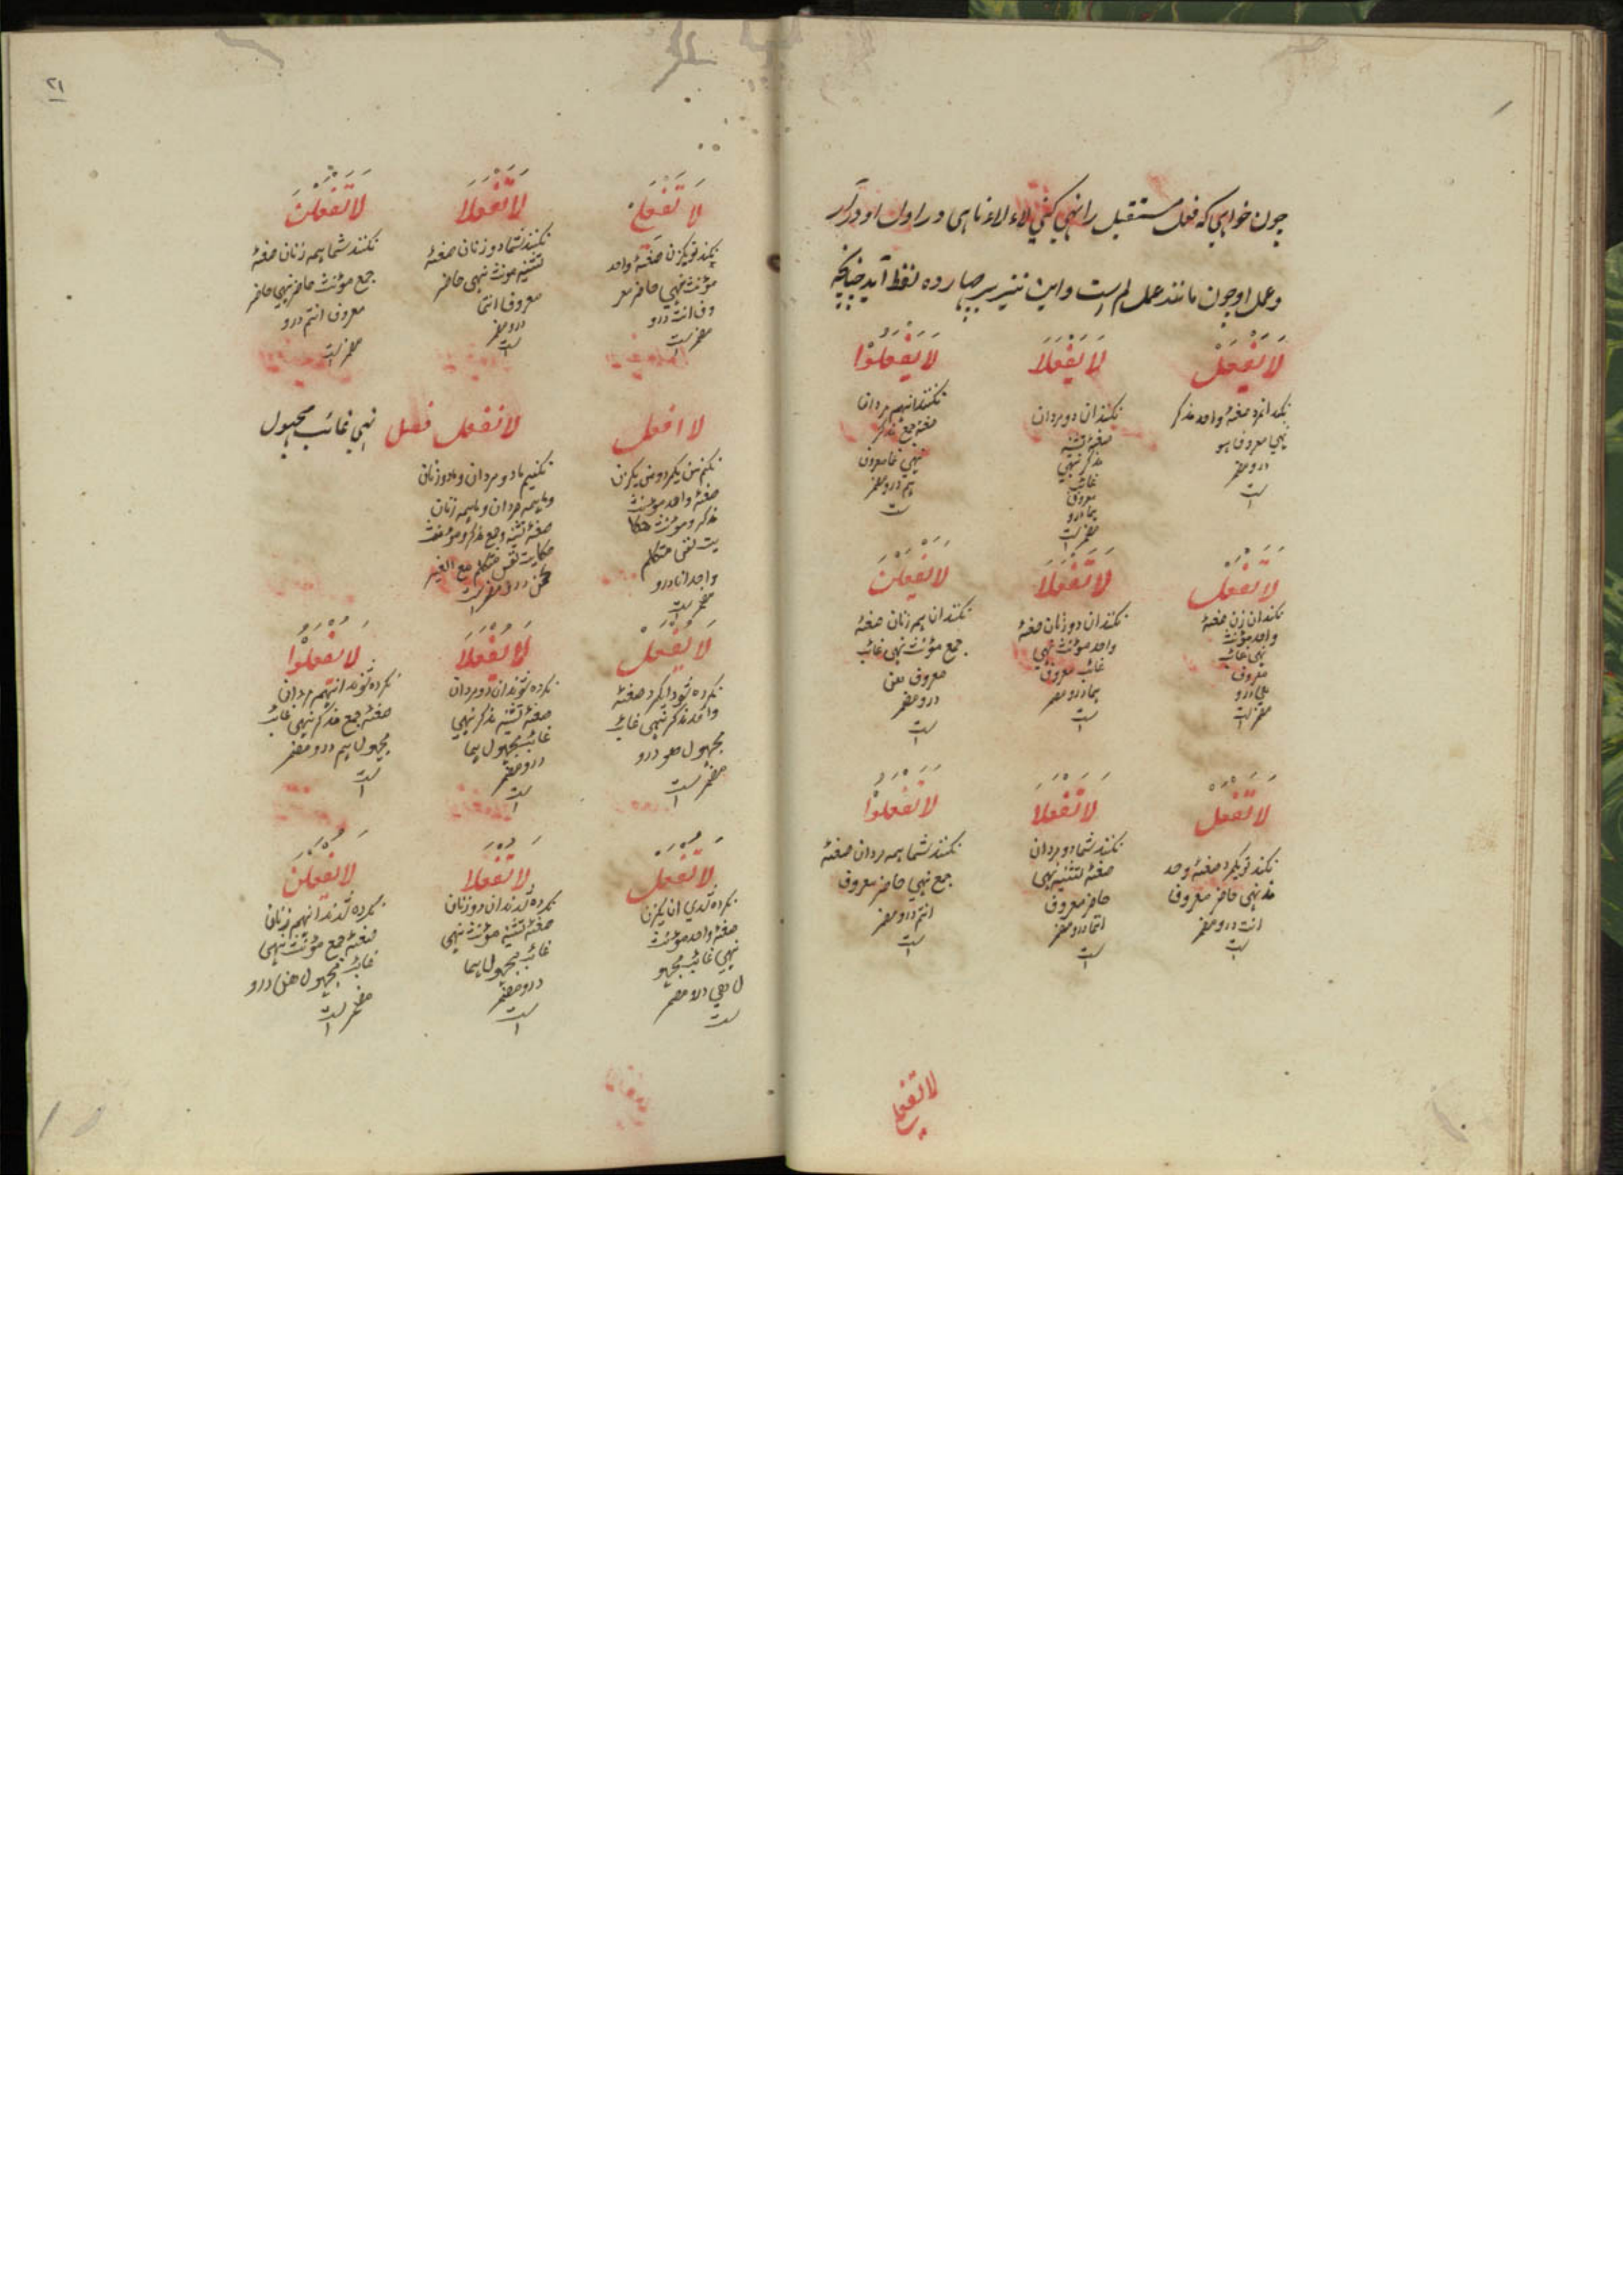 چون خواهی که فعل مستقبل را نهی کنی لاء لاء ناهی در اول او درآر
وعمل او چون مانند عمل لم است واین نیز بر چهارده لفظ آید چنانچه
لَا يَفْعَلْ
نکند انمرد صغهٔ واحد مذکر
نهی معروف هو
درو مضمر
است
لَا يَفْعَلَا
نکنند ان دو مردان
صغهٔ تثنیه
مذکر نهی
غائب
معروف
هما درو
مضمر است
لَا يَفْعَلُوْا
نکنند انهم مردان
صغه جمع مذکر
نهی معروف
هم درو مضمر
ست
لَا تَفْعَلْ
نکند ان زن صغهٔ
واحد مؤنث
نهی غائب
معروف
هی درو
مضمر است
لَا تَفْعَلَا
نکنند ان دو زنان صغهٔ
واحد مؤنث نهی
غائب معروف
هما درو مضمر
است
لَا يَفْعَلْنَ
نکنند ان همه زنان صغهٔ
جمع مؤنث نهی غائب
معروف هن
درو مضمر
است
لَا تَفْعَلْ
نکند تو یکمرد صغهٔ وحد
مذ نهی حاضر معروف
انت درو مضمر
است
لَا تَفْعَلَا
نکنند شما دو مردان
صغهٔ تثنیه نهی
حاضر معروف
انتما درو مضمر
است
لَا تَفْعَلُوْا
نکنند شما همه مردان صغهٔ
جمع نهی حاضر معروف
انتم درو مضمر
است
لا تفعلی
۲۱
لَا تَفْعَلِیْ
نکند تو یکزن صغهٔ واحد
مؤنث نهی حاضر معر
وف انت درو
مضمر است
لَا تَفْعَلَا
نکنند شما دو زنان صغهٔ
تثنیه مونث نهی حاضر
معروف انتما
درو مضمر
است
لَا تَفْعَلْنَ
نکنند شما همه زنان صغهٔ
جمع مؤنث حاضر نهی حاضر
معروف انتم درو
مضمر است
لا افعل
نکنم من یکمرد و من یکزن
صغهٔ واحد مؤنث
مذکر و مونث حکا
یت نفس متکلم
واحد انا درو
مضمر است
لا نفعل فصل نهی غائب مجهول
نکنیم ما دو مردان و ما دو زنان
و ما همه مردان و ما همه زنان
صغهٔ تثنیه وجمع مذکر ومؤنث
حکایت نفس متکلم مع الغیر
نحن درو مضمر است
لَا يُفْعَلْ
نکرده شود ان یکمرد صغهٔ
واحد مذکر نهی غائب
مجهول هو درو
مضمر است
لَا يُفْعَلَا
نکرده شوند ان دو مردان
صغهٔ تثنیه مذکر نهی
غائب مجهول هما
درو مضمر
است
لَا يُفْعَلُوْا
نکرده شوند انهم مردان
صغهٔ جمع مذکر نهی غائب
مجهول هم درو مضمر
است
لَا تُفْعَلْ
نکرده شدی ان یکزن
صغهٔ واحد مؤنث
نهی غائب مجهو
ل هی درو مضمر
ست
لَا تُفْعَلَا
نکرده شدند ان دو زنان
صغهٔ تثنیه مؤنث نهی
غائب مجهول هما
درو مضمر
است
لَا يُفْعَلْنَ
نکرده شدند انهم زنان
صغهٔ جمع مؤنث نهی
غائب مجهول هن درو
مضمر است